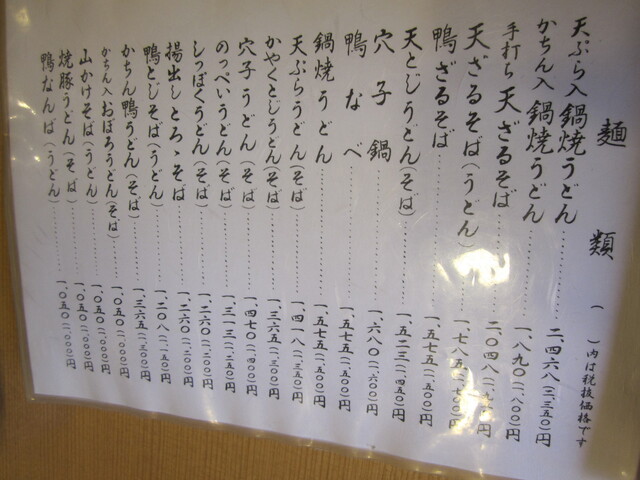 麺類 ( )内は税抜価格です
天ぷら入鍋焼うどん………二、四六八(二、三五〇)円
かちん入鍋焼うどん………一、八九〇(一、八〇〇)円
手打ち天ざるそば………二、〇四八(一、九五〇)円
天ざるそば(うどん)………一、七八五(一、七〇〇)円
鴨ざるそば………一、五七五(一、五〇〇)円
天とじうどん(そば)………一、五二三(一、四五〇)円
穴子鍋………一、六八〇(一、六〇〇)円
鴨なべ………一、五七五(一、五〇〇)円
鍋焼うどん………一、五七五(一、五〇〇)円
天ぷらうどん(そば)………一、四一八(一、三五〇)円
かやくとじうどん(そば)………一、三六五(一、三〇〇)円
穴子うどん(そば)………一、四七〇(一、四〇〇)円
のっぺいうどん(そば)………一、三一三(一、二五〇)円
しっぽくうどん(そば)………一、二六〇(一、二〇〇)円
揚出しとろゝそば………一、二六〇(一、二〇〇)円
鴨とじそば(うどん)………一、二〇八(一、一五〇)円
かちん鴨うどん(そば)………一、三六五(一、三〇〇)円
かちん入おぼろうどん(そば)………一、〇五〇(一、〇〇〇)円
山かけそば(うどん)………一、〇五〇(一、〇〇〇)円
焼豚うどん(そば)………一、〇五〇(一、〇〇〇)円
鴨なんば(うどん)………一、〇五〇(一、〇〇〇)円